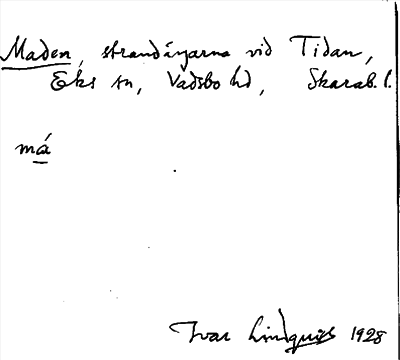 Maden, strandängarna vid Tidan,
Eks sn, Vadsbo hd, Skarab. l.
má
Ivar Lindquist 1928